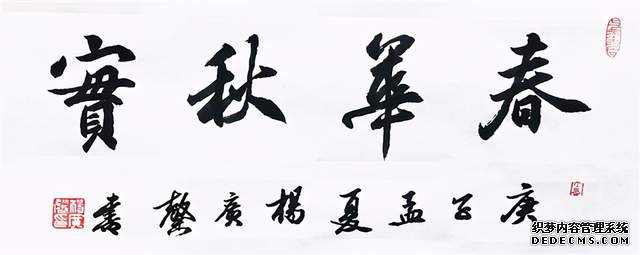 春華秋實
庚子孟夏楊廣馨書
织梦内容管理系统
DEDECMS.COM